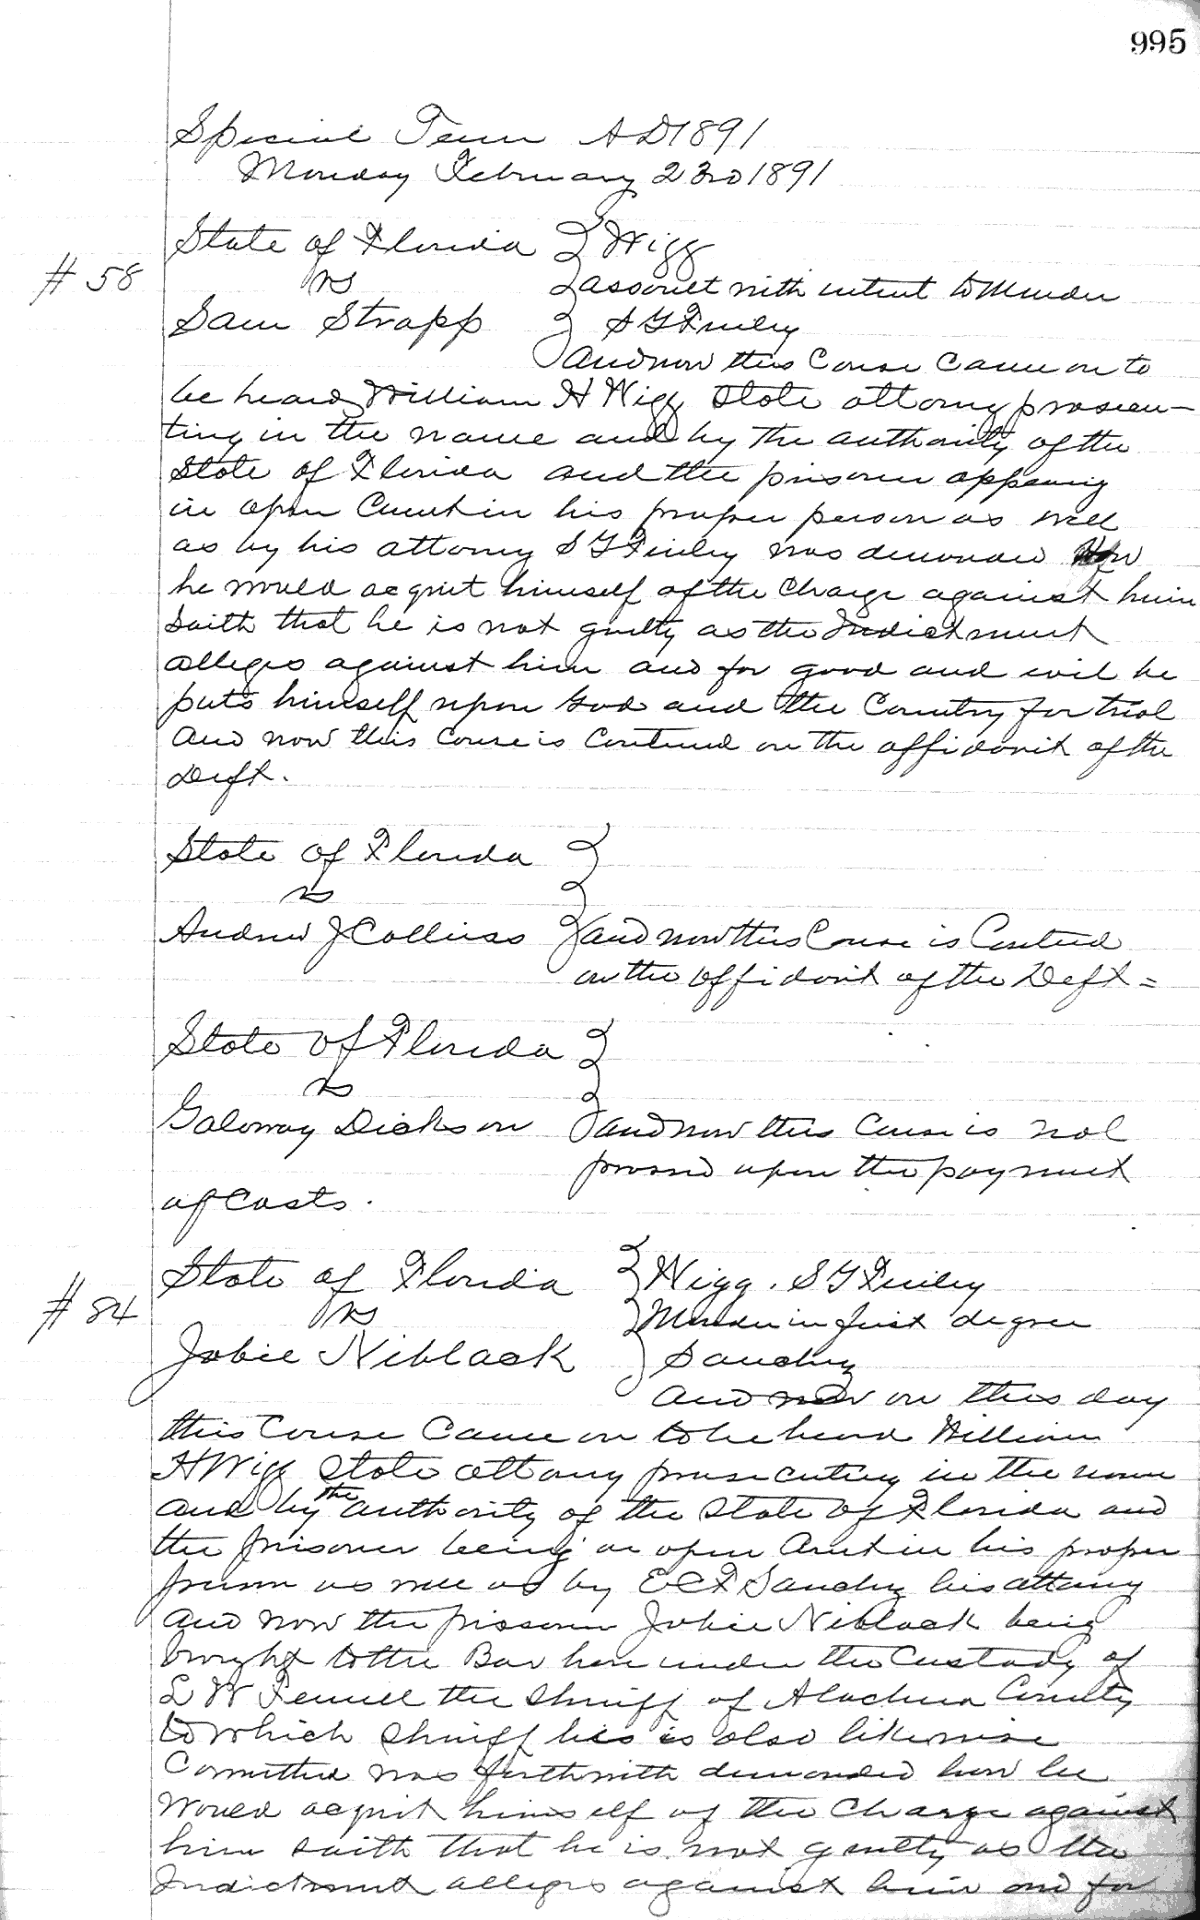 995
Special Term AD 1891
Monday February 23rd 1891
State of Florida } Wigg
# 58 vs } assault with intent to Murder
Sam Strapp } S G Finley
And now this Cause Came on to
be heard William H Wigg State attorney prosecu-
ting in the name and by the authority of the
State of Florida and the prisoner appearing
in open Court in his proper person as well
as by his attorney S G Finley was demanded How
he would acquit himself of the Charge against him
Saith that he is not guilty as the Indictment
alleges against him and for good and evil he
puts himself upon God and the Country for trial
And now this Cause is Contnued on the affidavit of the
Deft.
State of Florida }
vs }
Andrew J Collins } And now this Cause is Contued
on the affidavit of the Deft =
State of Florida }
vs }
Galoway Dickson } And now this Cause is nol
prossed upon the payment
of Costs.
State of Florida } Wigg. S G Finley
# 84 vs } Murder in first degree
Jobie Niblack } Sanchez
And now on this day
this Cause Came on to be heard William
H Wigg State attorney prosecuting in the name
and by the authority of the State of Florida and
the prisoner being in open Court in his proper
person as well as by E C F Sanchez his attorney
And now the prisoner Jobie Niblack being
brought to the Bar here under the Custody of
L W Fennell the Sheriff of Alachua County
to which Sheriff he is also likewise
Committed was forthwith demanded how he
Would acquit himself of the Charge against
him saith that he is not guilty as the
Indictment alleges against him and for